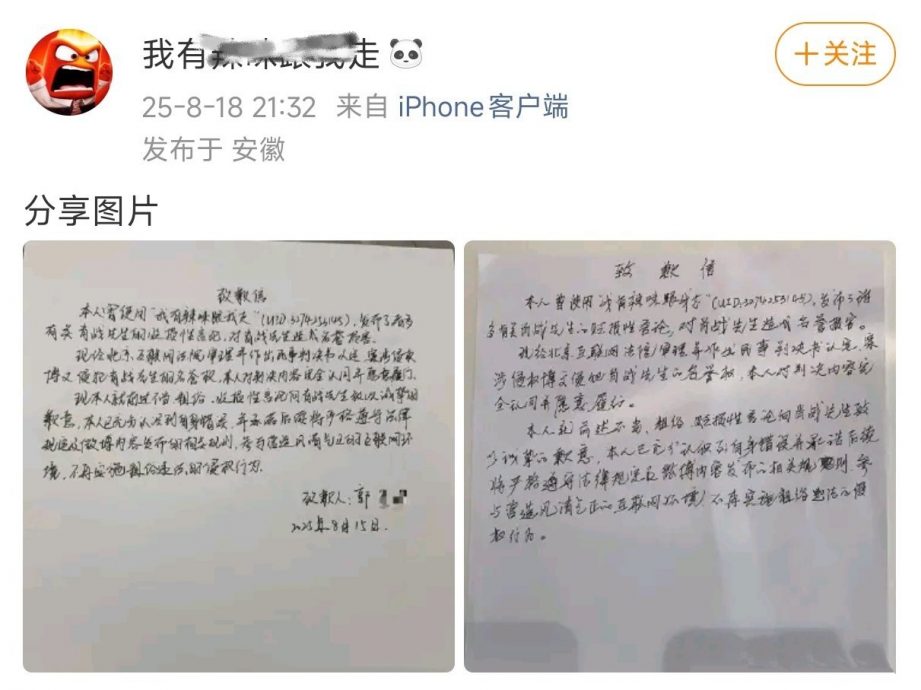 我有 走🐼
+关注
25-8-18 21:32 来自 iPhone客户端
发布于 安徽
分享图片
致歉信
本人曾使用"我有辣味跟我走"(UID: ),发布了诸多
有关肖战先生的贬损性言论,对肖战先生造成名誉损害。
现经北京互联网法院审理并作出民事判决书认定,案涉侵权
博文侵犯肖战先生的名誉权,本人对判决内容完全认同并愿意履行。
现本人就前述不当、粗俗、贬损性言论向肖战先生致以诚挚的
歉意,本人已充分认识到自身错误,并承诺后续将严格遵守法律
规定及微博内容发布的相关规则,参与营造风清气正的互联网环
境,不再实施粗俗违法的侵权行为。
致歉人:郭
2025年8月15日.
致歉信
本人曾使用"我有辣味跟我走"(UID:3274253145),发布了诸
多有关肖战先生的贬损性言论,对肖战先生造成名誉损害。
现经北京互联网法院审理并作出民事判决书认定,案
涉侵权博文侵犯肖战先生的名誉权,本人对判决内容完
全认同并愿意履行。
本人就前述不当、粗俗、贬损性言论向肖战先生致
以诚挚的歉意,本人已充分认识到自身错误并承诺后续
将严格遵守法律规定及微博内容发布的相关规则,参
与营造风清气正的互联网环境,不再实施粗俗违法的侵
权行为。